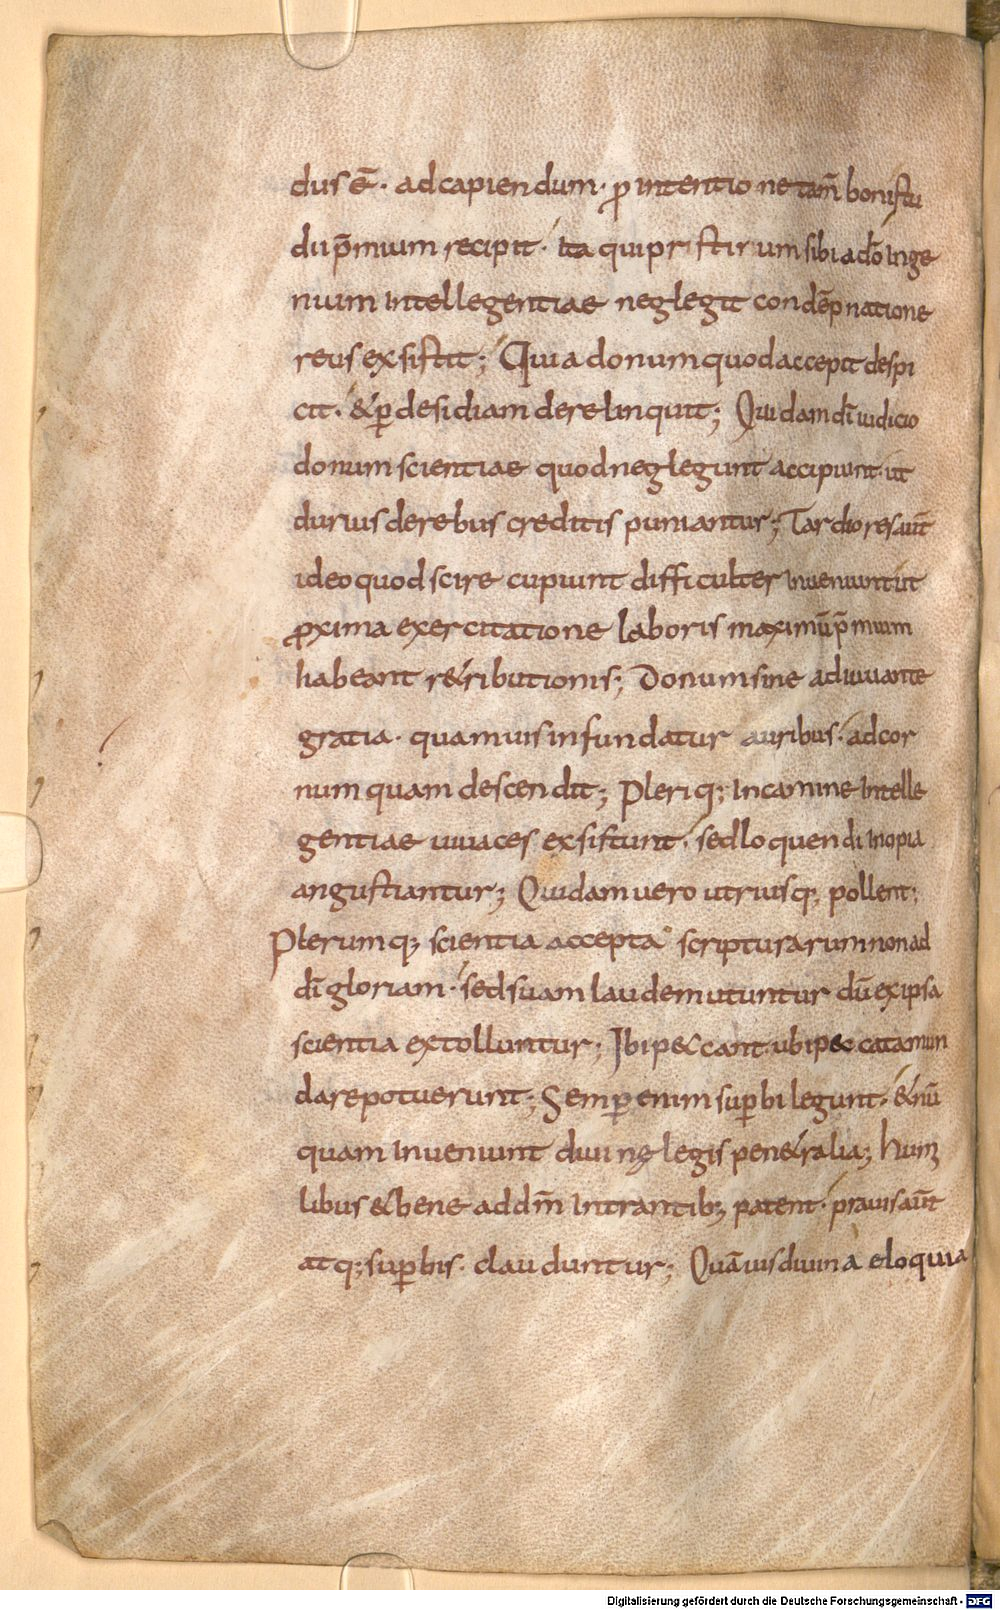 dus ē· ad capiendum· ꝓ intentione tam̄ boni stu
dii p̄mium recipit· ita qui pristirum sibi a dō inge
nium intellegentiae neglegit condēpnatione
reus exsistit; Quia donum quod accepit despi
cit· & ꝑ desidiam derelinquit; Quidam dī iudicio
donum scientiae quod neglegunt accipiunt· ut
durius de rebus creditis puniantur; Tardiores aut̄
ideo quod scire cupiunt difficulter inueniunt ut
ꝓxima exercitatione laboris maximū p̄mium
habeant r&ributionis; Donum sine adiuuante
gratia· quamuis infundatur auribus· ad cor
numquam descendit; Pleriq; in camine intelle
gentiae uiuaces exsistunt· sed loquendi inopia
angustiantur; Quidam uero utriusq; pollent;
Plerumq; scientia accepta scripturarum non ad
dī gloriam· sed suam laudem utuntur dū ex ipsa
scientia extolluntur; Ibi p&cant· ubi p&cata mun
dare potuerunt; Semꝑ enim suꝑbi legunt· & nū
quam inueniunt diuine legis pen&ralia; humi
libus & bene ad dm̄ intrantib; patent· prauis aut̄
atq; suꝑbis· clauduntur; Quāuis diuina eloquia
Digitalisierung gefördert durch die Deutsche Forschungsgemeinschaft - DFG